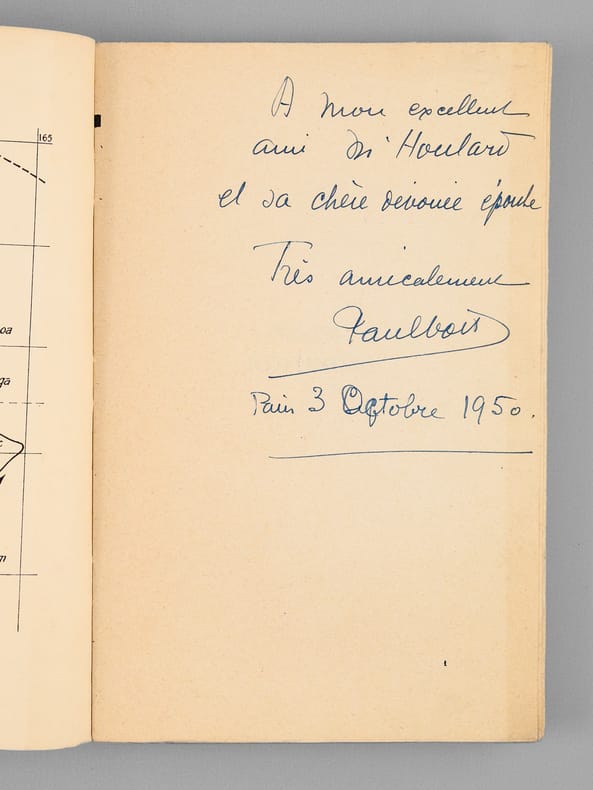 165
oa
ga
A mon excellent
ami Mr Houlard
et sa chère dévouée épouse
Très amicalement
Faulbois
Paris 3 Octobre 1950.